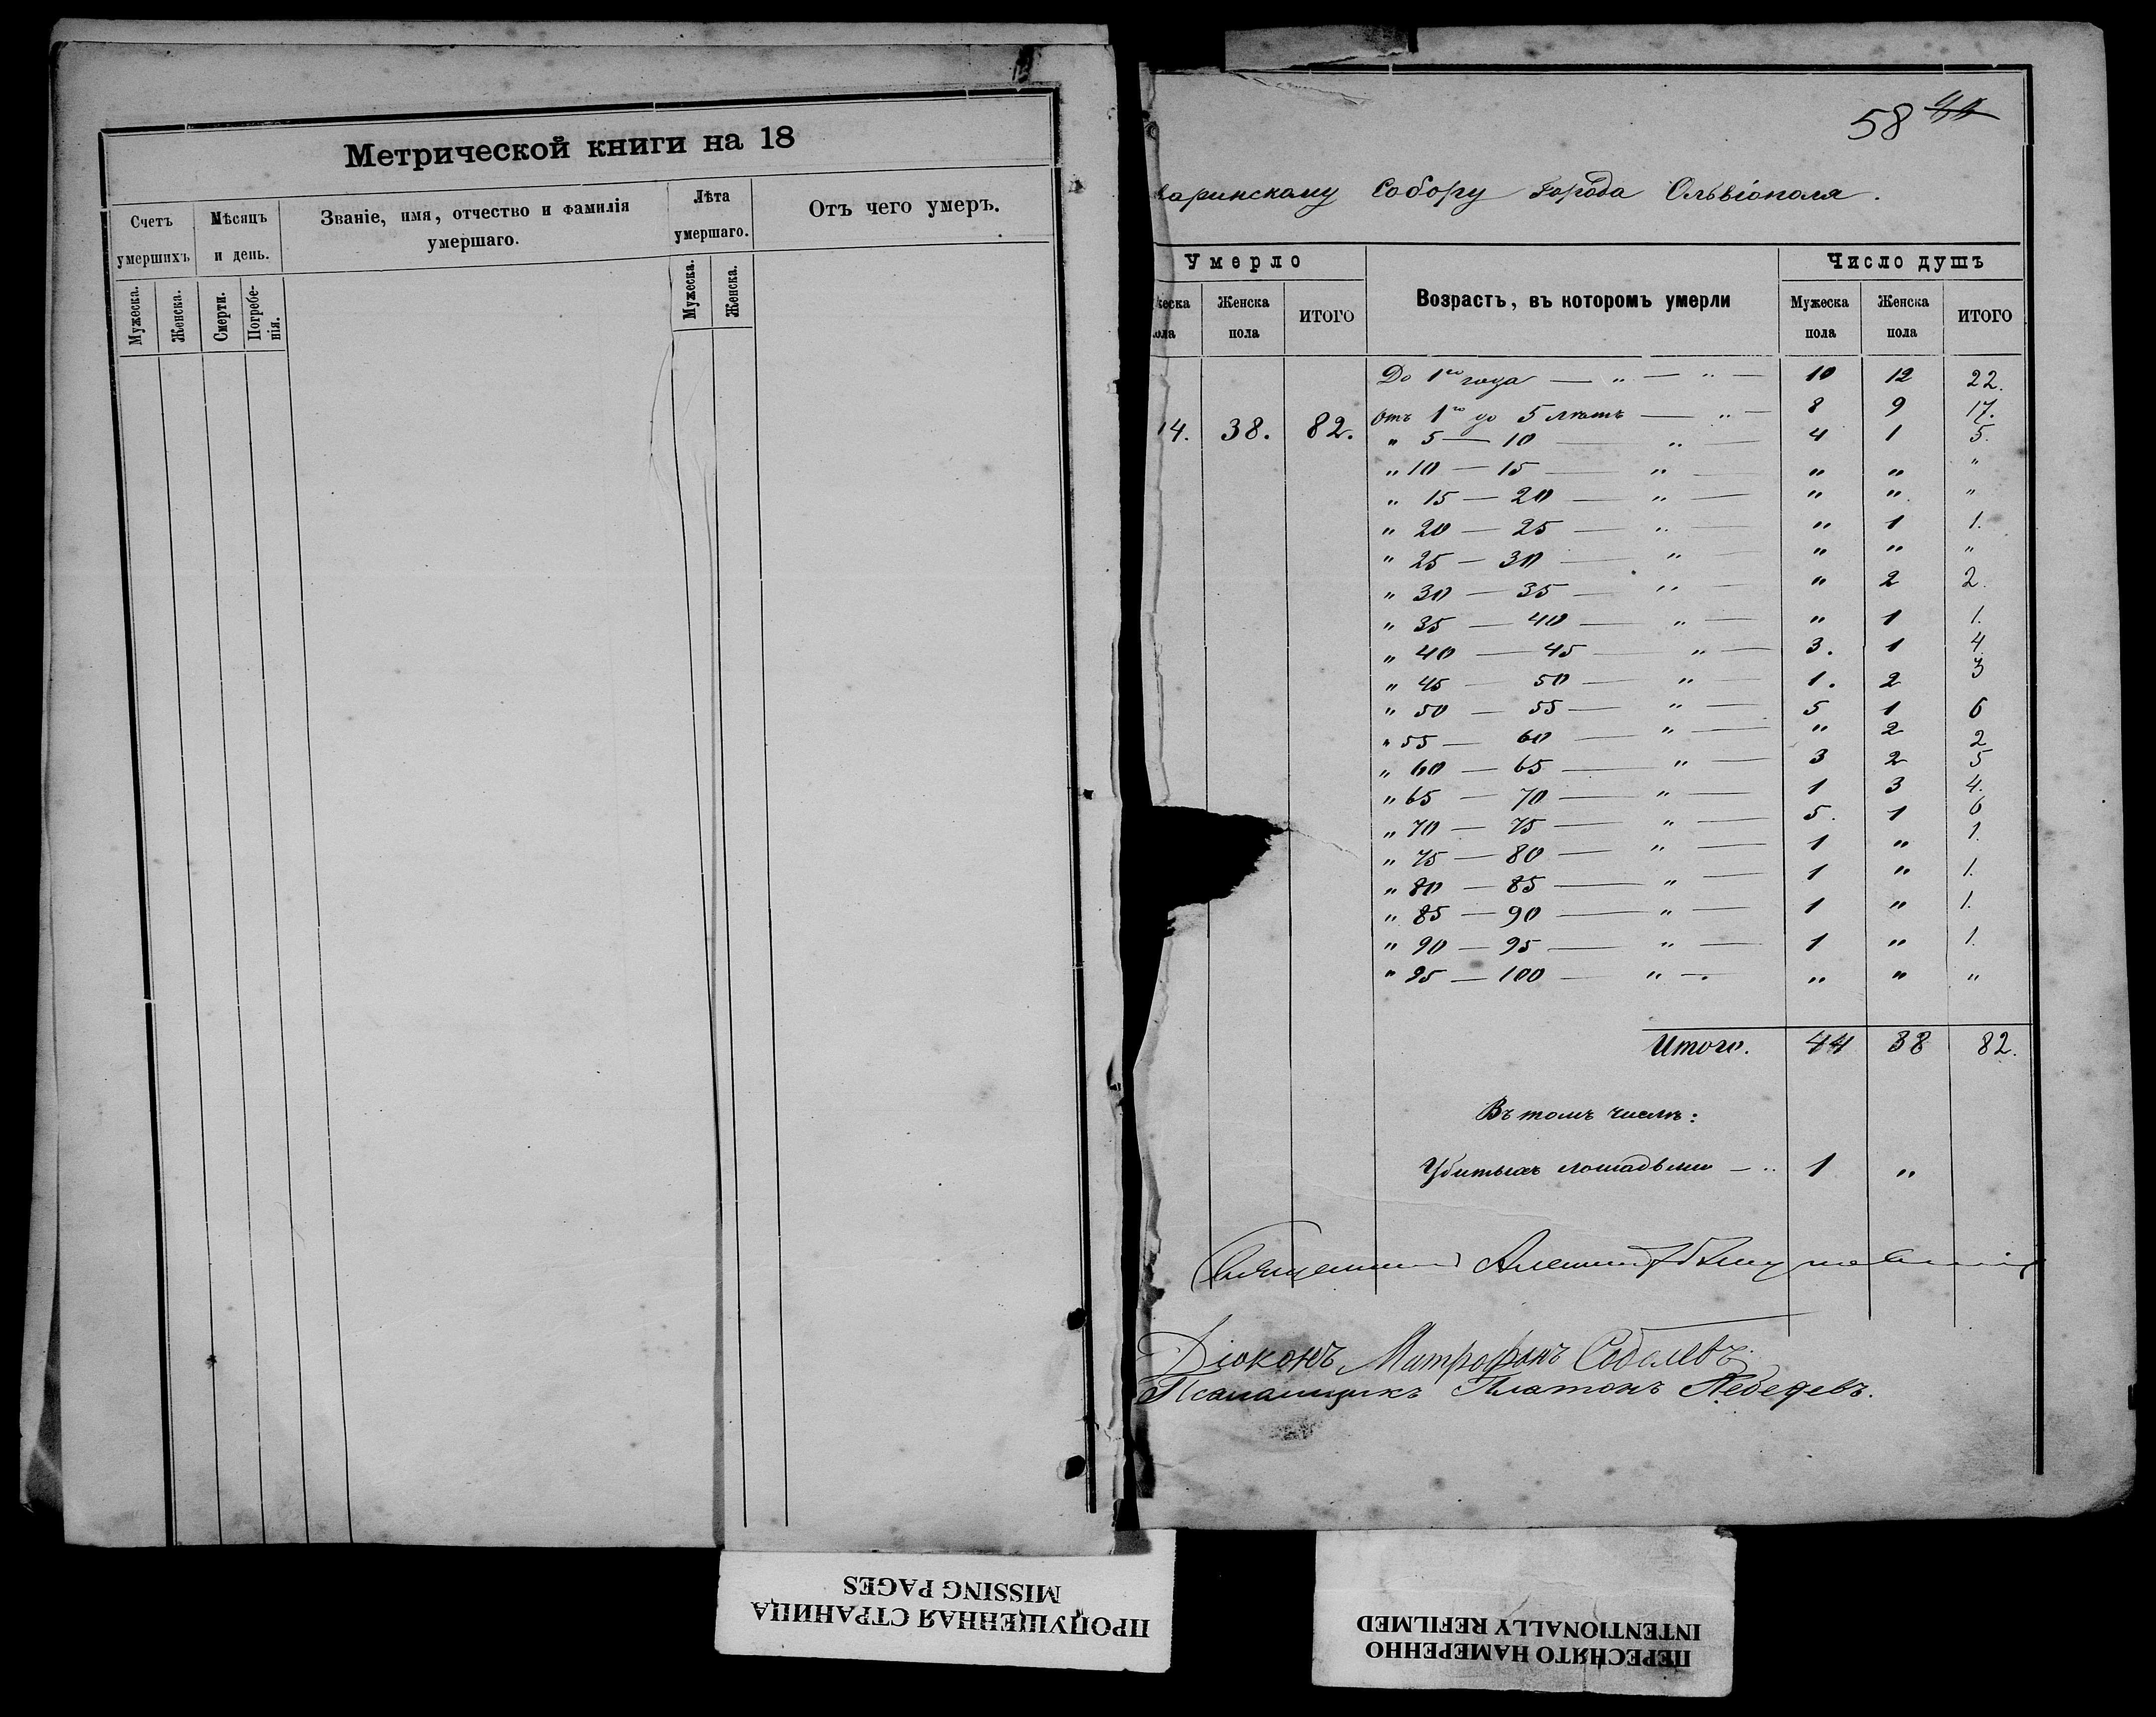 Метрической книги на 18
Счетъ умершихъ
Мѣсяцъ и день.
Званіе, имя, отчество и фамилія умершаго.
Лѣта умершаго.
Отъ чего умеръ.
Мужеска.
Женска.
Смерти.
Погребенія.
Мужеска.
Женска.
58
аринскому Собору города Ольвіополя.
Умерло
Возрастъ, въ которомъ умерли
Число душъ
жеска пола
Женска пола
ИТОГО
Мужеска пола
Женска пола
ИТОГО
4. 38. 82.
До 1го года — „ — „ — 10 12 22.
Отъ 1го до 5 лѣтъ — „ — 8 9 17.
„ 5 — 10 — „ — 4 1 5.
„ 10 — 15 — „ — „ „ „
„ 15 — 20 — „ — „ „ „
„ 20 — 25 — „ — „ 1 1.
„ 25 — 30 — „ — „ „ „
„ 30 — 35 — „ — „ 2 2.
„ 35 — 40 — „ — „ 1 1.
„ 40 — 45 — „ — 3. 1 4.
„ 45 — 50 — „ — 1. 2 3
„ 50 — 55 — „ — 5 1 6
„ 55 — 60 — „ — „ 2 2
„ 60 — 65 — „ — 3 2 5
„ 65 — 70 — „ — 1 3 4.
„ 70 — 75 — „ — 5. 1 6
„ 75 — 80 — „ — 1 „ 1.
„ 80 — 85 — „ — 1 „ 1.
„ 85 — 90 — „ — 1 „ 1.
„ 90 — 95 — „ — 1 „ 1.
„ 95 — 100 — „ — „ „ „
Итого. 44 38 82.
Въ томъ числѣ:
Убитыхъ лошадьми — „ 1 „
Священникъ
Діаконъ Митрофанъ Соболевъ
Псаломщикъ Платонъ Лебедевъ.
ПРОПУЩЕННАЯ СТРАНИЦА
MISSING PAGES
ПЕРЕСНЯТО НАМЕРЕННО
INTENTIONALLY REFILMED